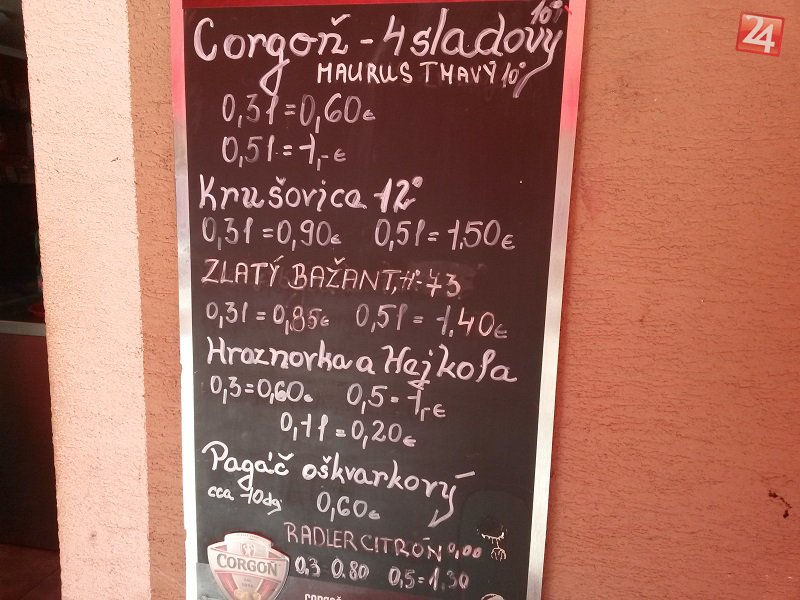 24
Corgoň - 4sladový 10°
MAURUS TMAVÝ 10°
0,3l=0,60€
0,5l=1,-€
Krušovica 12°
0,3l=0,90€ 0,5l=1,50€
ZLATÝ BAŽANT, 73
0,3l=0,85€ 0,5l=1,40€
Hroznovka a Hejkola
0,3=0,60€ 0,5=1,-€
0,1l=0,20€
Pagáč oškvarkový
cca 70dg 0,60€
RADLER CITRÓN 0,00
0,3 0.80 0,5=1,30
CORGOŇ